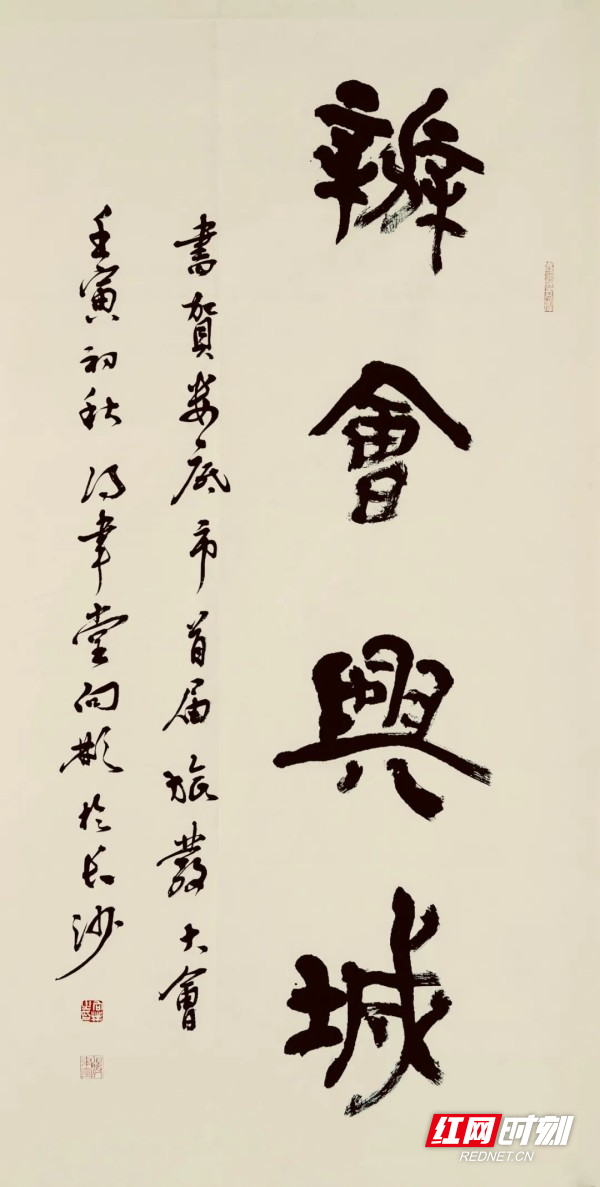 辦會興城
書賀娄底市首届旅發大會
壬寅初秋得堂向於长沙
红网时刻
REDNET.CN